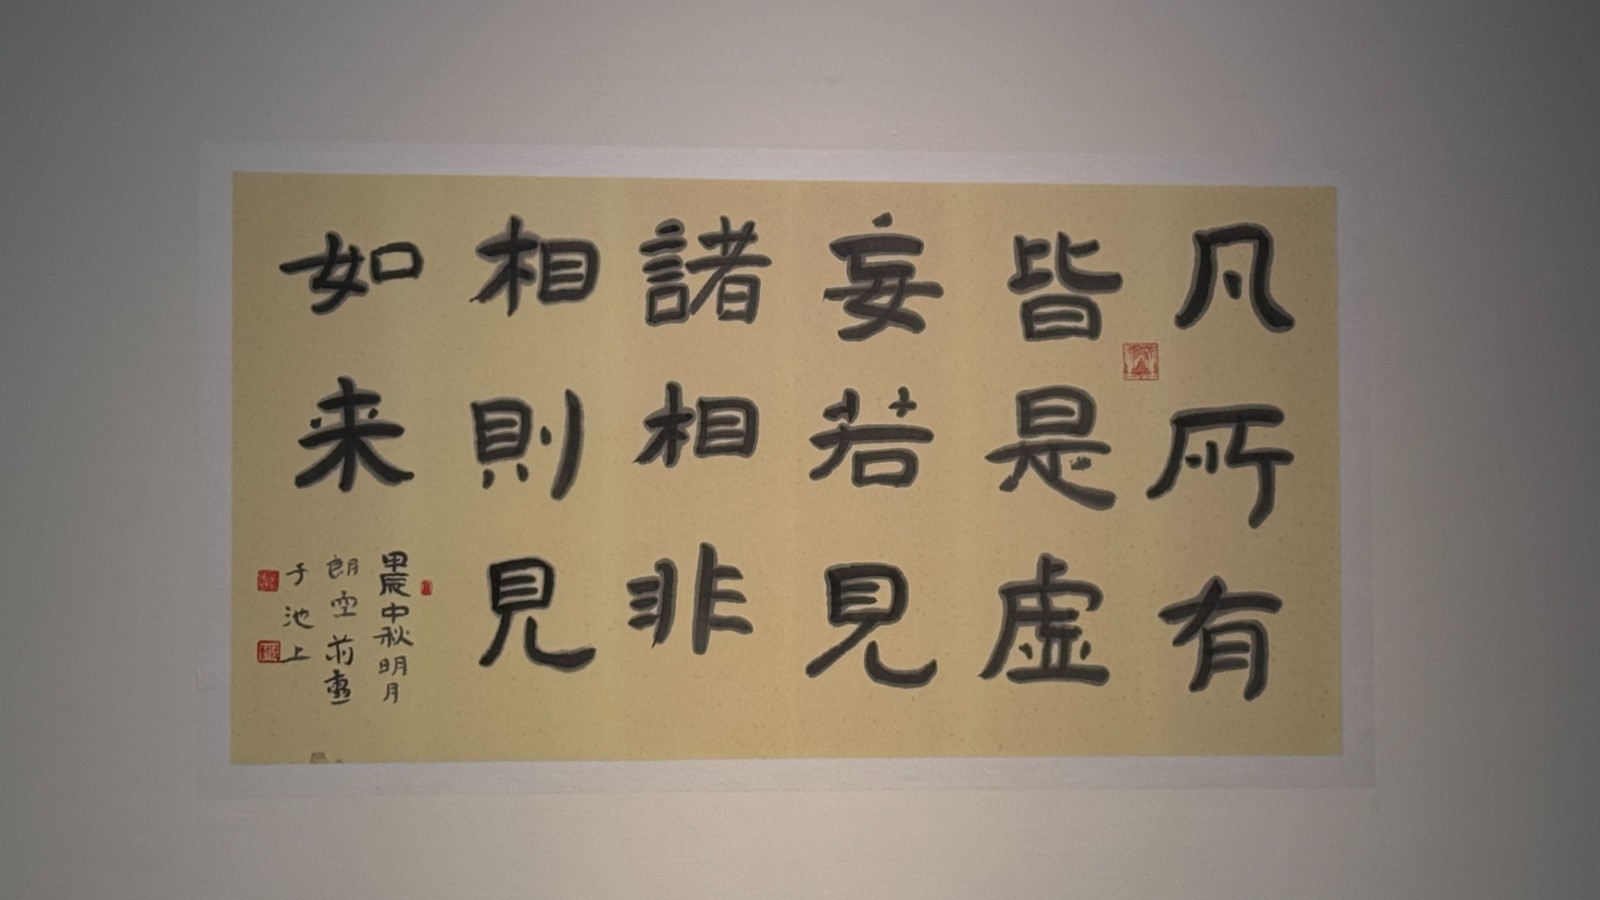 凡所有
皆是虚
妄若見
諸相非
相則見
如来
甲辰中秋明月
朗空
于池上